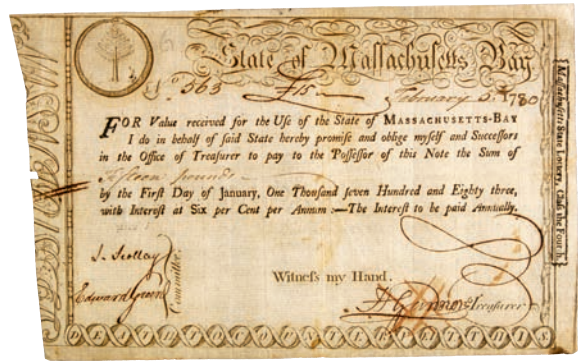 State of Massachusetts Bay
No. 563 £15 February 6. 1780
FOR Value received for the Use of the State of MASSACHUSETTS-BAY
I do in behalf of said State hereby promise and oblige myself and Successors
in the Office of Treasurer to pay to the Possessor of this Note the Sum of
Fifteen pounds
by the First Day of January, One Thousand seven Hundred and Eighty three,
with Interest at Six per Cent per Annum :—The Interest to be paid Annually.
J. Scollay
Edward Green
Committee.
Witness my Hand.
Treasurer
DEATH TO COUNTERFEIT THIS
Massachusetts State Lottery, Class the Four h.